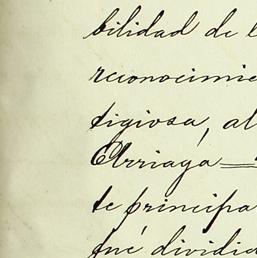 bilidad de l
reconocimie
tigiosa, al
Arriaga=
te principa
fué dividid